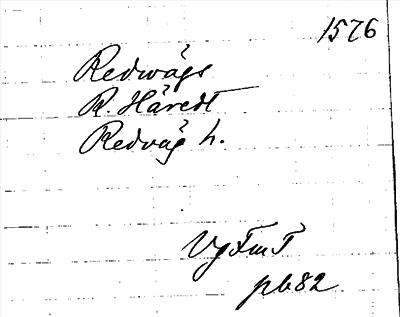 1576
Redwägs
R. Häredt
Redväg h.
VgFmT
pb82